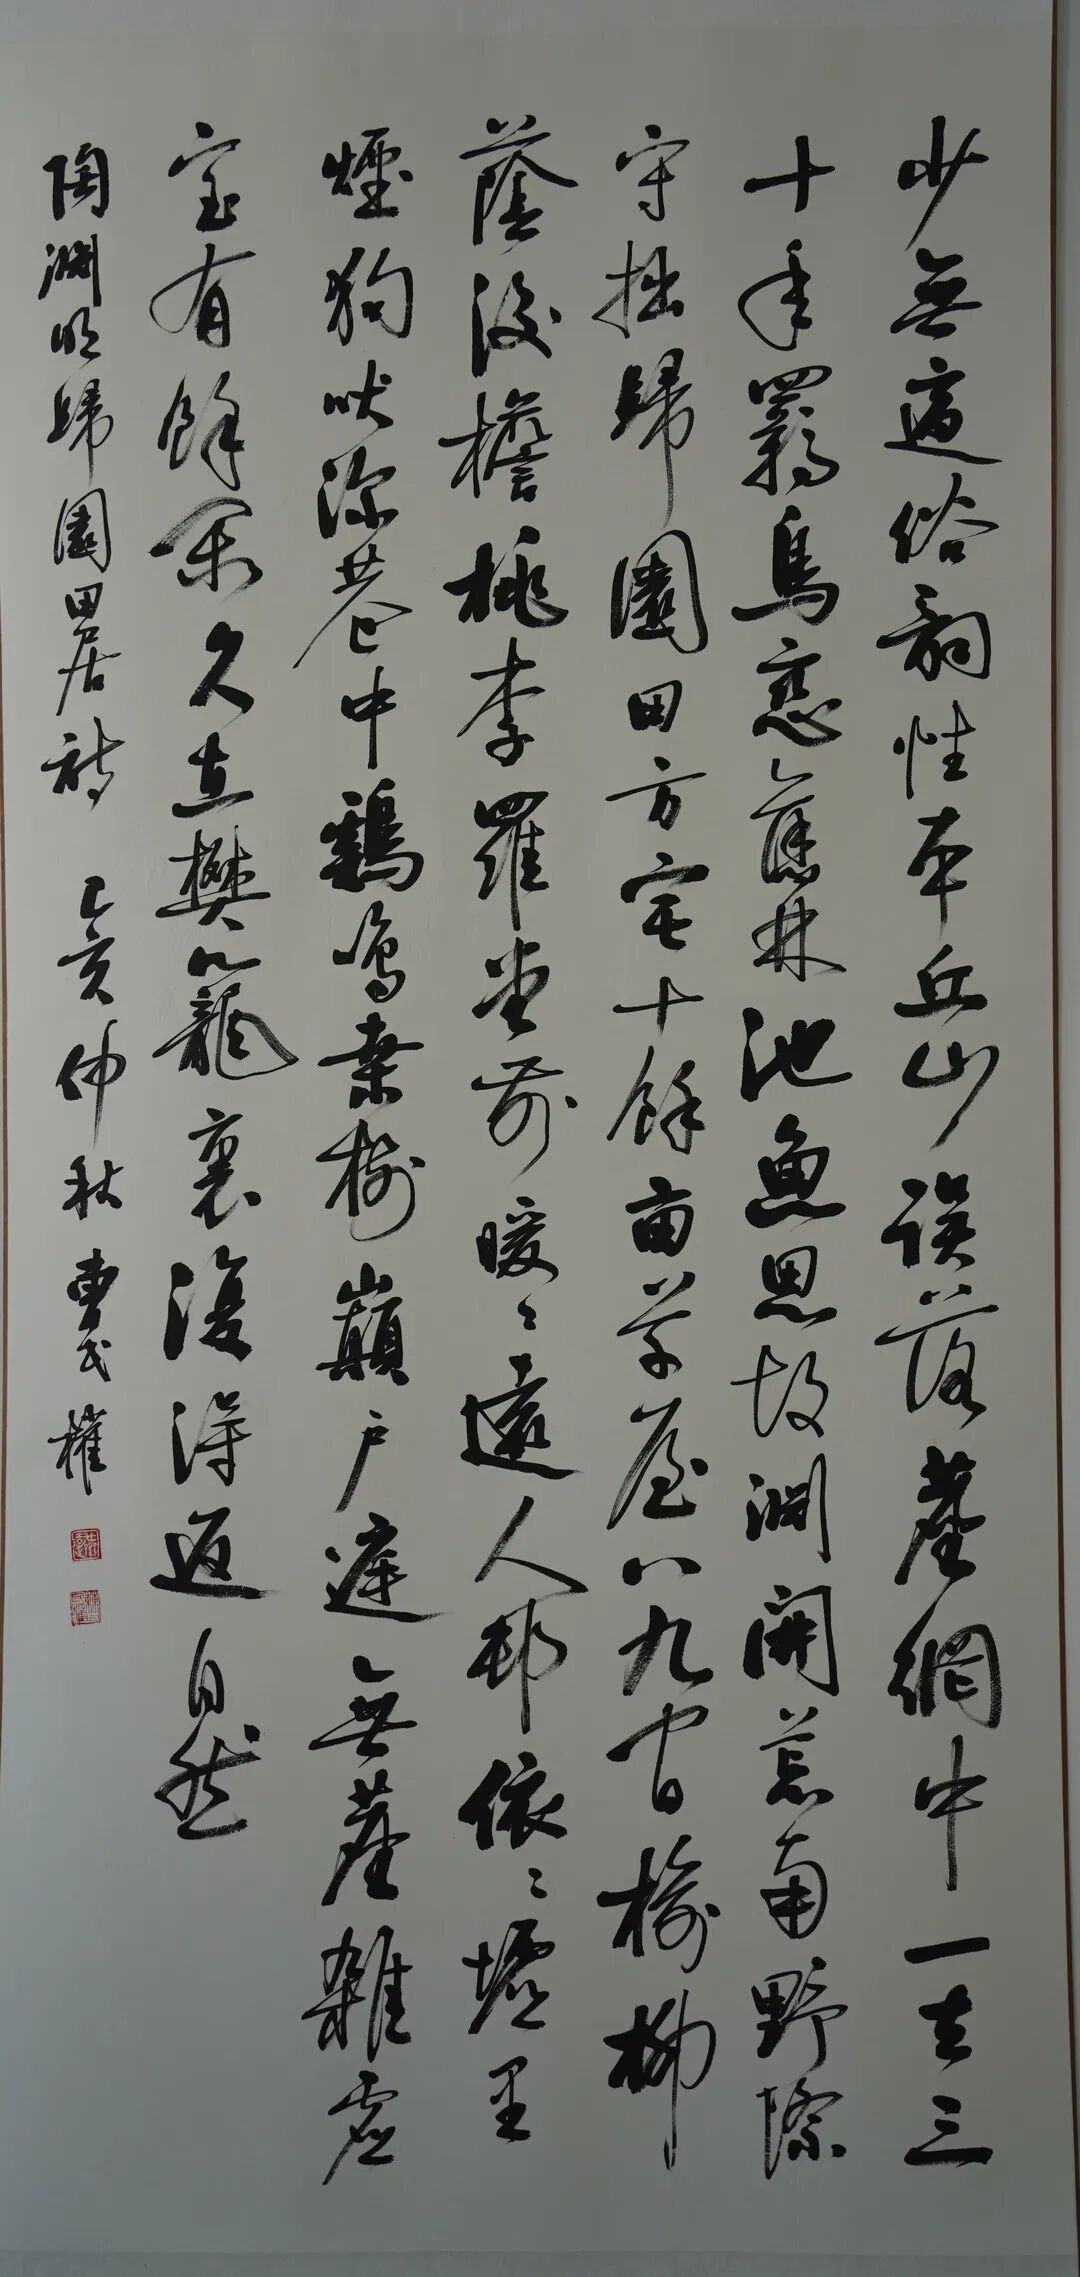 少無適俗韵性本丘山誤落塵網中一去三
十年羈鳥戀舊林池魚思故淵開荒南野際
守拙歸園田方宅十餘亩草屋八九间榆柳
蔭後檐桃李羅堂前暧〻遠人邨依〻墟里
煙狗吠深巷中鷄鳴桑樹巔户庭無塵雜虚
室有餘閑久在樊籠裏復得返自然
陶淵明歸園田居詩 己亥仲秋 曹民權